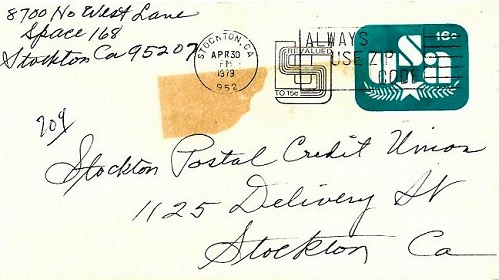 8700 No West Lane
Space 168
Stockton Ca 95207
STOCKTON, CA
APR 30
PM
1979
952
REVALUED
TO 15c
ALWAYS
USE ZIP
CODE
USA
Stockton Postal Credit Union
1125 Delivery St
Stockton Ca